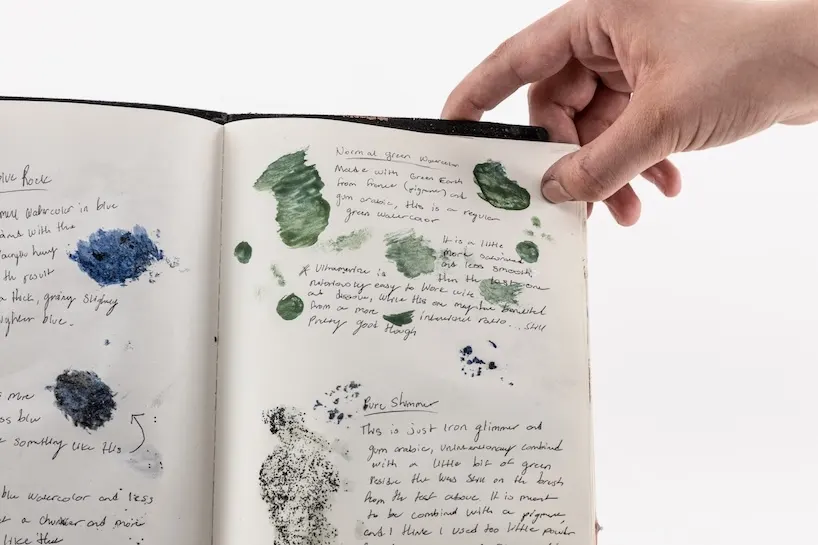 Rock
watercolor in blue
with this
the result
a thick, grainy
blue.
more
ss blue
something like this
blue watercolor and less
a chunkier and more
like this
Normal green watercolor
Made with Green Earth
from France (pigment) and
gum arabic, this is a regular
green watercolor
It is a little
more
and less smooth
than the last one
* Ultramarine is
notoriously easy to work with
and disolve, while this one may have benefited
from a more interwined ratio... still
Pretty good though
Pure Shimmer
This is just Iron glimmer and
gum arabic, unintentionally combined
with a little bit of green
residue that was still on the brush
from the test above It is meant
to be combined with a pigment,
and I think I used too little powder